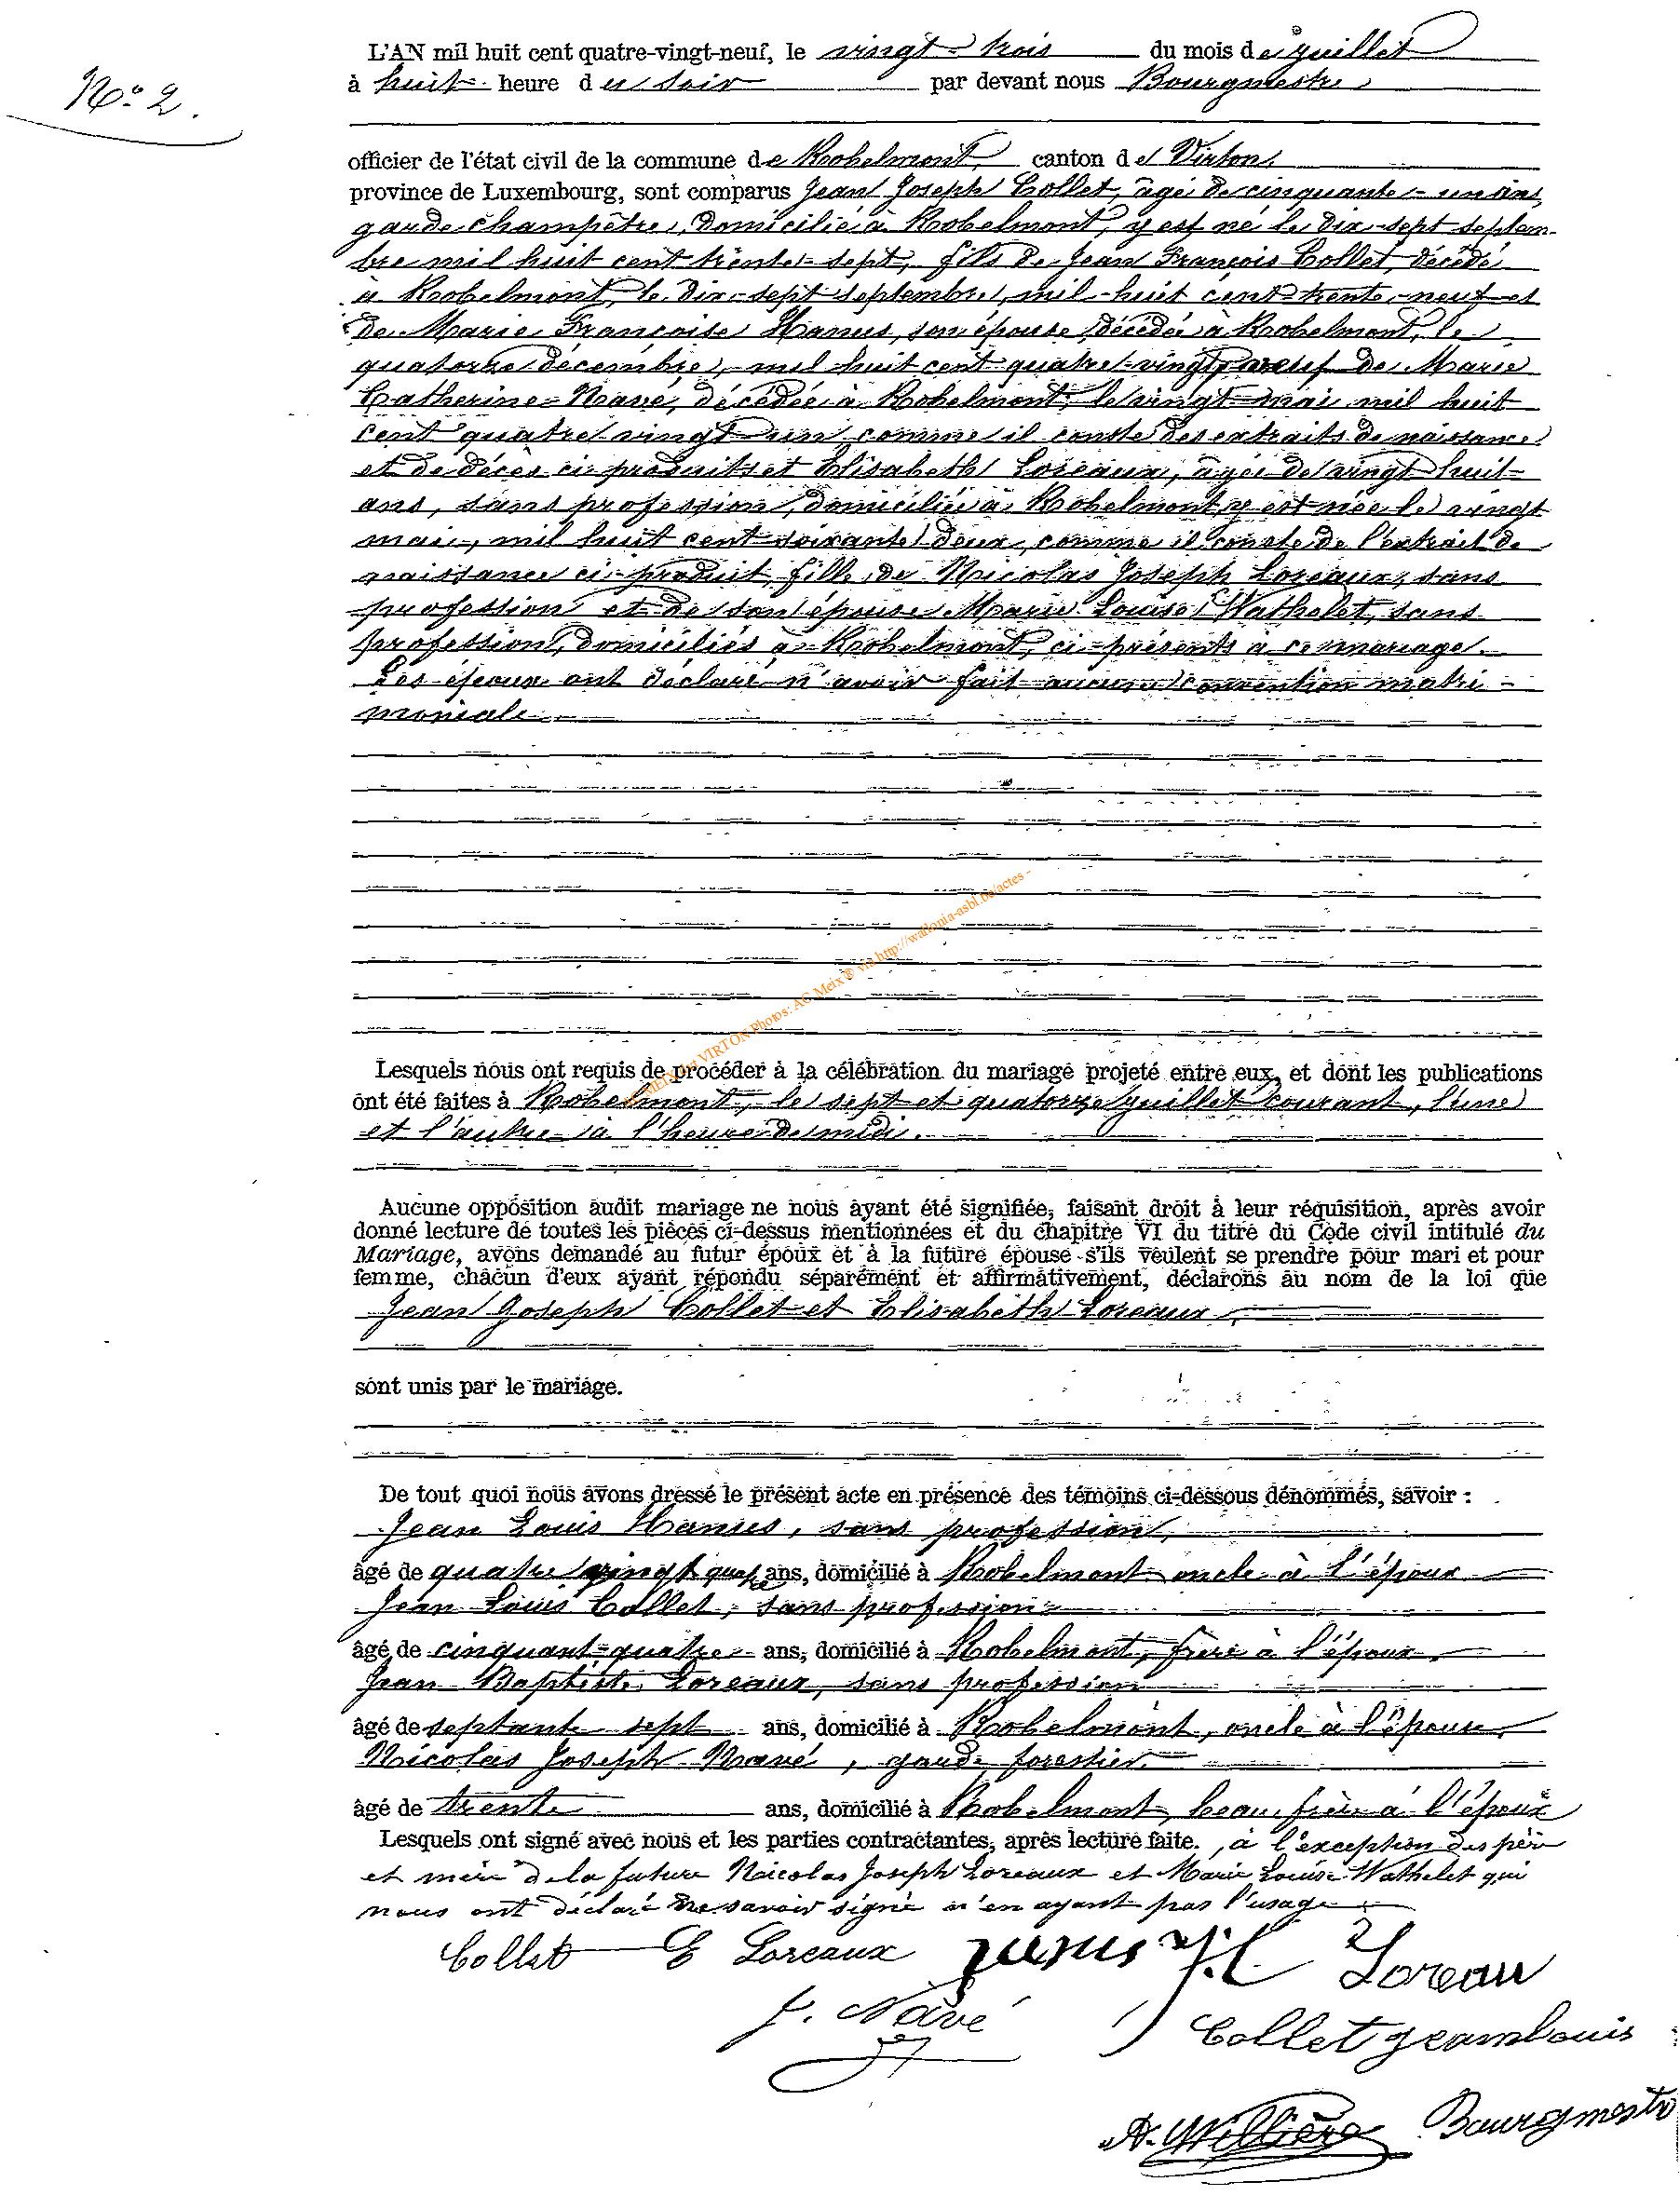 N° 2.
L'AN mil huit cent quatre-vingt-neuf, le vingt-trois du mois de juillet
à huit heure du soir par devant nous Bourgmestre
officier de l'état civil de la commune de Robelmont, canton de Virton,
province de Luxembourg, sont comparus Jean Joseph Collet, âgé de cinquante-un ans,
garde champêtre, domicilié à Robelmont, y est né le dix-sept septem-
bre mil huit cent trente-sept, fils de Jean François Collet, décédé
à Robelmont, le dix-sept septembre, mil-huit cent-trente-neuf et
de Marie Françoise Hanus, son épouse, décédée à Robelmont, le
quatorze décembre, mil huit cent quatre-vingt, veuf de Marie
Catherine Navé, décédée à Robelmont, le vingt mai mil huit
cent quatre-vingt-un, comme il conste des extraits de naissance
et de décès ci-produits et Elisabeth Loreaux, âgée de vingt huit
ans, sans profession, domiciliée à Robelmont, y est née le vingt
mai, mil huit cent soixante deux, comme il conste de l'extrait de
naissance ci-produit, fille de Nicolas Joseph Loreaux, sans
profession et de son épouse Marie Louise Wathelet, sans
profession, domiciliés à Robelmont, ci-présents à ce mariage.
Les époux ont déclaré n'avoir fait aucune convention matri-
moniale.
MEIX dvt VIRTON Photos: AC Meix ® via http://wallonia-asbl.be/actes -
Lesquels nous ont requis de procéder à la célébration du mariage projeté entre eux, et dont les publications
ont été faites à Robelmont, le sept et quatorze juillet courant, l'une
et l'autre à l'heure de midi.
Aucune opposition audit mariage ne nous ayant été signifiée, faisant droit à leur réquisition, après avoir
donné lecture de toutes les pièces ci-dessus mentionnées et du chapitre VI du titre du Code civil intitulé du
Mariage, avons demandé au futur époux et à la future épouse s'ils veulent se prendre pour mari et pour
femme, chacun d'eux ayant répondu séparément et affirmativement, déclarons au nom de la loi que
Jean Joseph Collet et Elisabeth Loreaux
sont unis par le mariage.
De tout quoi nous avons dressé le présent acte en présence des témoins ci-dessous dénommés, savoir :
Jean Louis Hanus, sans profession,
âgé de quatre vingt quatre ans, domicilié à Robelmont oncle à l'époux
Jean Louis Collet, sans profession
âgé de cinquant-quatre ans, domicilié à Robelmont, frère à l'époux,
Jean Baptiste Loreaux, sans profession
âgé de septante sept ans, domicilié à Robelmont, oncle à l'épouse,
Nicolas Joseph Navé, garde forestier
âgé de trente ans, domicilié à Robelmont, beau frère à l'époux
Lesquels ont signé avec nous et les parties contractantes, après lecture faite., à l'exception des père
et mère de la future Nicolas Joseph Loreaux et Marie Louise Wathelet qui
nous ont déclaré ne savoir signé n'en ayant pas l'usage
Collet E Loreaux J.L Loreau
J. Navé Collet jeanlouis
A. Willière Bourgmestre